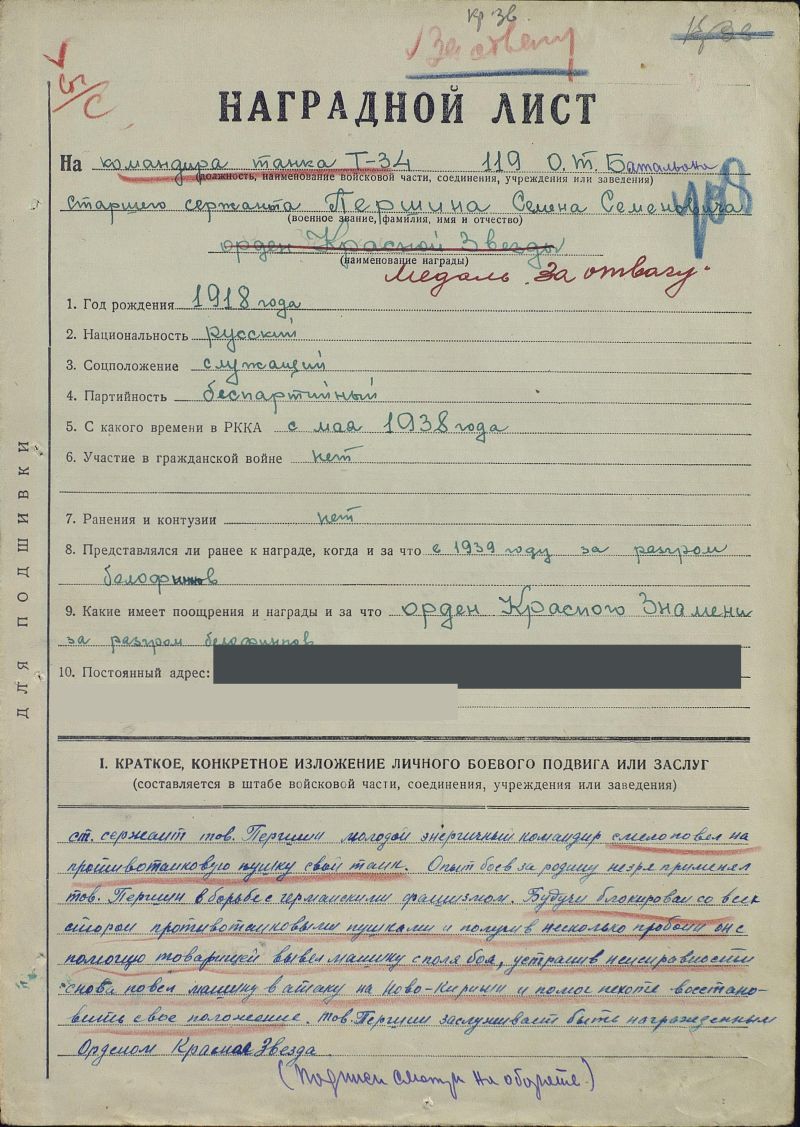 кр зв.
За отвагу
Кр Зв
НАГРАДНОЙ ЛИСТ
На командира танка Т-34 119 О.Т. Батальона
(должность, наименование войсковой части, соединения, учреждения или заведения)
Старшего сержанта Першина Семена Семеновича
(военное звание, фамилия, имя и отчество)
орден Красной Звезды
(наименование награды)
медаль "За отвагу"
1. Год рождения 1918 года
2. Национальность русский
3. Соцположение служащий
4. Партийность беспартийный
5. С какого времени в РККА с мая 1938 года
6. Участие в гражданской войне нет
7. Ранения и контузии нет
8. Представлялся ли ранее к награде, когда и за что в 1939 году за разгром
белофинов
9. Какие имеет поощрения и награды и за что орден Красного Знамени
за разгром белофиннов
10. Постоянный адрес:
ДЛЯ ПОДШИВКИ
I. КРАТКОЕ, КОНКРЕТНОЕ ИЗЛОЖЕНИЕ ЛИЧНОГО БОЕВОГО ПОДВИГА ИЛИ ЗАСЛУГ
(составляется в штабе войсковой части, соединения, учреждения или заведения)
ст. сержант тов. Першин молодой энергичный командир смело повел на
противотанковую пушку свой танк. Опыт боев за родину незря применял
тов. Першин в борьбе с германским фашизмом. Будучи блокирован со всех
сторон противотанковыми пушками и получив несколько пробоин он с
помощью товарищей вывел машину с поля боя, устранив неисправности
снова повел машину в атаку на Ново-Кириши и помог пехоте восстано-
вить свое положение. тов. Першин заслуживает быть награжденным
Орденом Красная Звезда.
(Подписи смотри на обороте.)